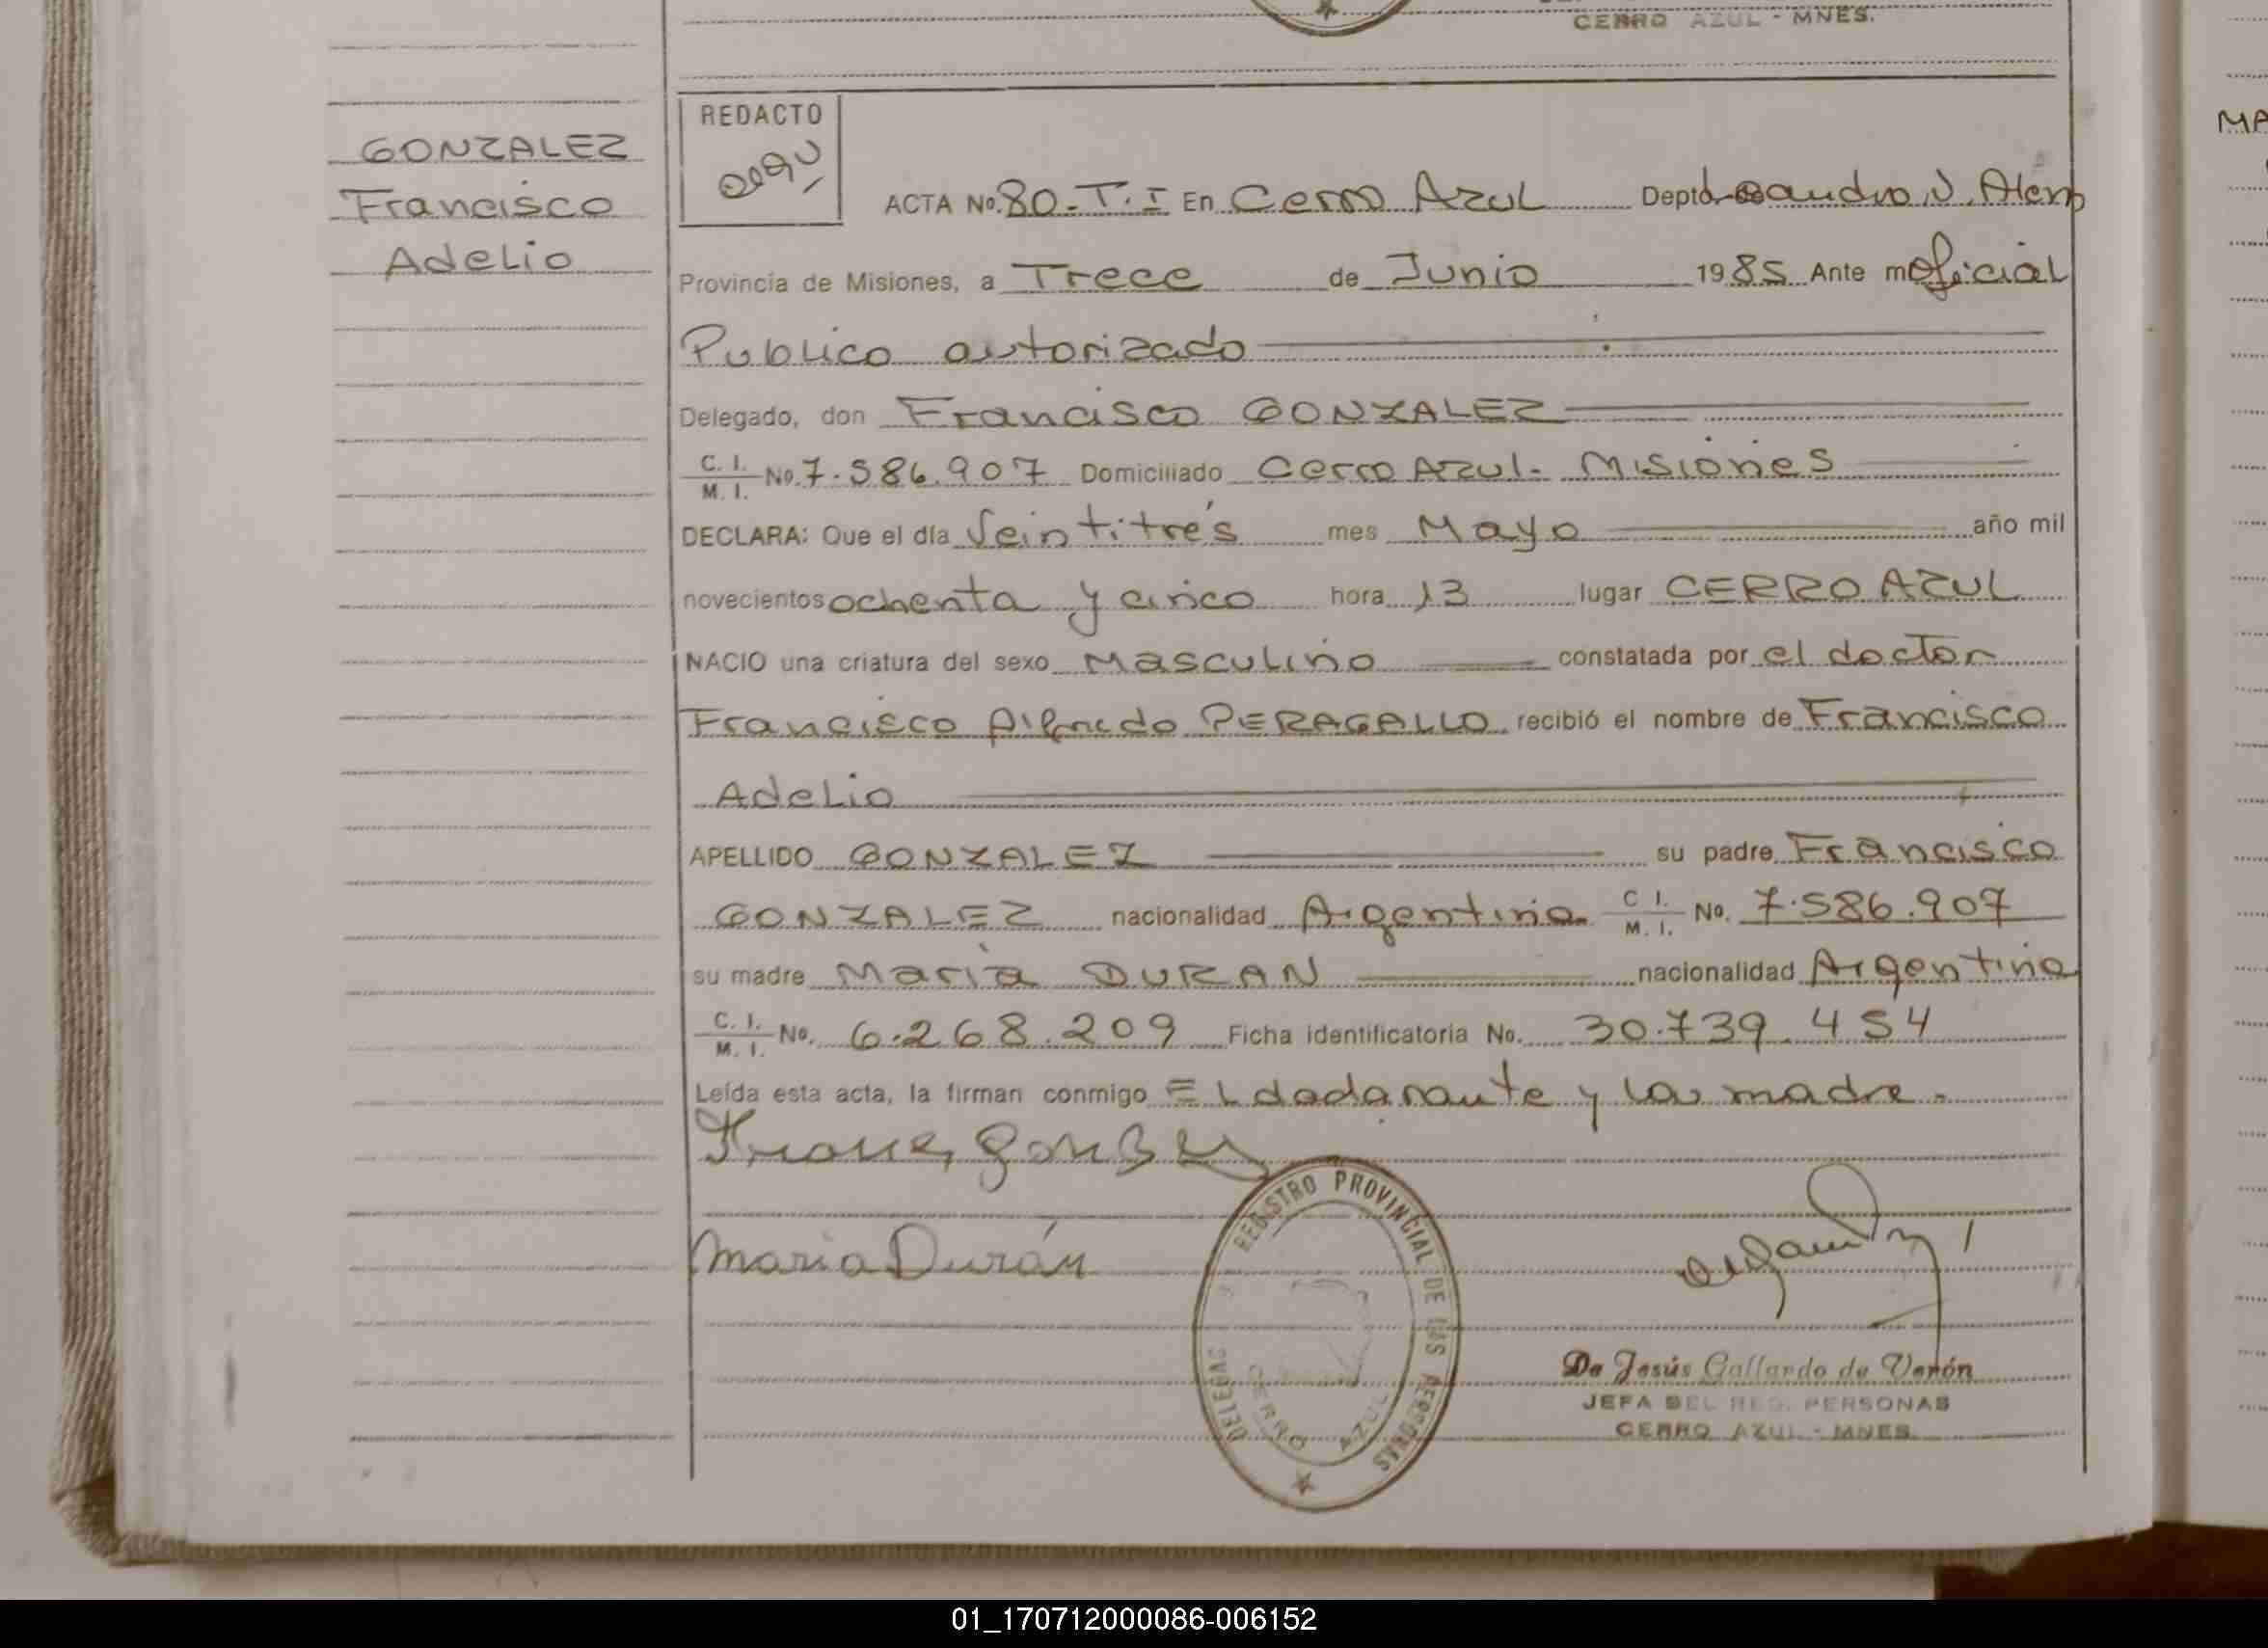 CERRO AZUL - MNES.
GONZALEZ
Francisco
Adelio
REDACTO
ACTA No. 80-T.I En Cerro Azul Depto. Leandro N. Alem
Provincia de Misiones, a Trece de Junio 1985 Ante mí Oficial
Publico autorizado
Delegado, don Francisco GONZALEZ
C. I. / M. I. No. 7.586.907 Domiciliado Cerro Azul - Misiones
DECLARA: Que el día Veintitrés mes Mayo año mil
novecientos ochenta y cinco hora 13 lugar CERRO AZUL
NACIO una criatura del sexo Masculino constatada por el doctor
Francisco Alfredo PERAGALLO recibió el nombre de Francisco
Adelio
APELLIDO GONZALEZ su padre Francisco
GONZALEZ nacionalidad Argentina C I. / M. I. No. 7.586.907
su madre Maria DURAN nacionalidad Argentina
C. I. / M. I. No. 6.268.209 Ficha identificatoria No. 30.739.454
Leída esta acta, la firman conmigo EL dadarante y la madre.
Maria Durán
REGISTRO PROVINCIAL DE LAS PERSONAS
DELEGA
CERRO AZUL
De Jesús Gallardo de Verón
JEFA DEL REG. PERSONAS
CERRO AZUL - MNES
MA
01_170712000086-006152